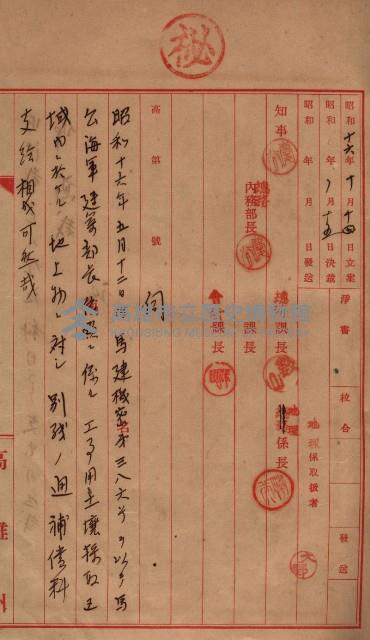 秘
昭和十六年十月十四日立案
昭和 年 〃月十五日決裁
昭和 年 月 日發送
淨書
校合
發送
地理係取扱者
知事
總務
內務部長
總務課長
地理係長
課長
會計課長
高 第 號
伺
昭和十六年五月十二日馬建機密第三八六号ヲ以テ馬
公海軍建築部長 依 係ル工事用土壤採取區
域内ニ於ケル地上物ニ対シ別紙ノ通補償料
支給相成可然哉
高雄州
高雄市立歷史博物館
KAOHSIUNG MUSEUM OF HISTORY